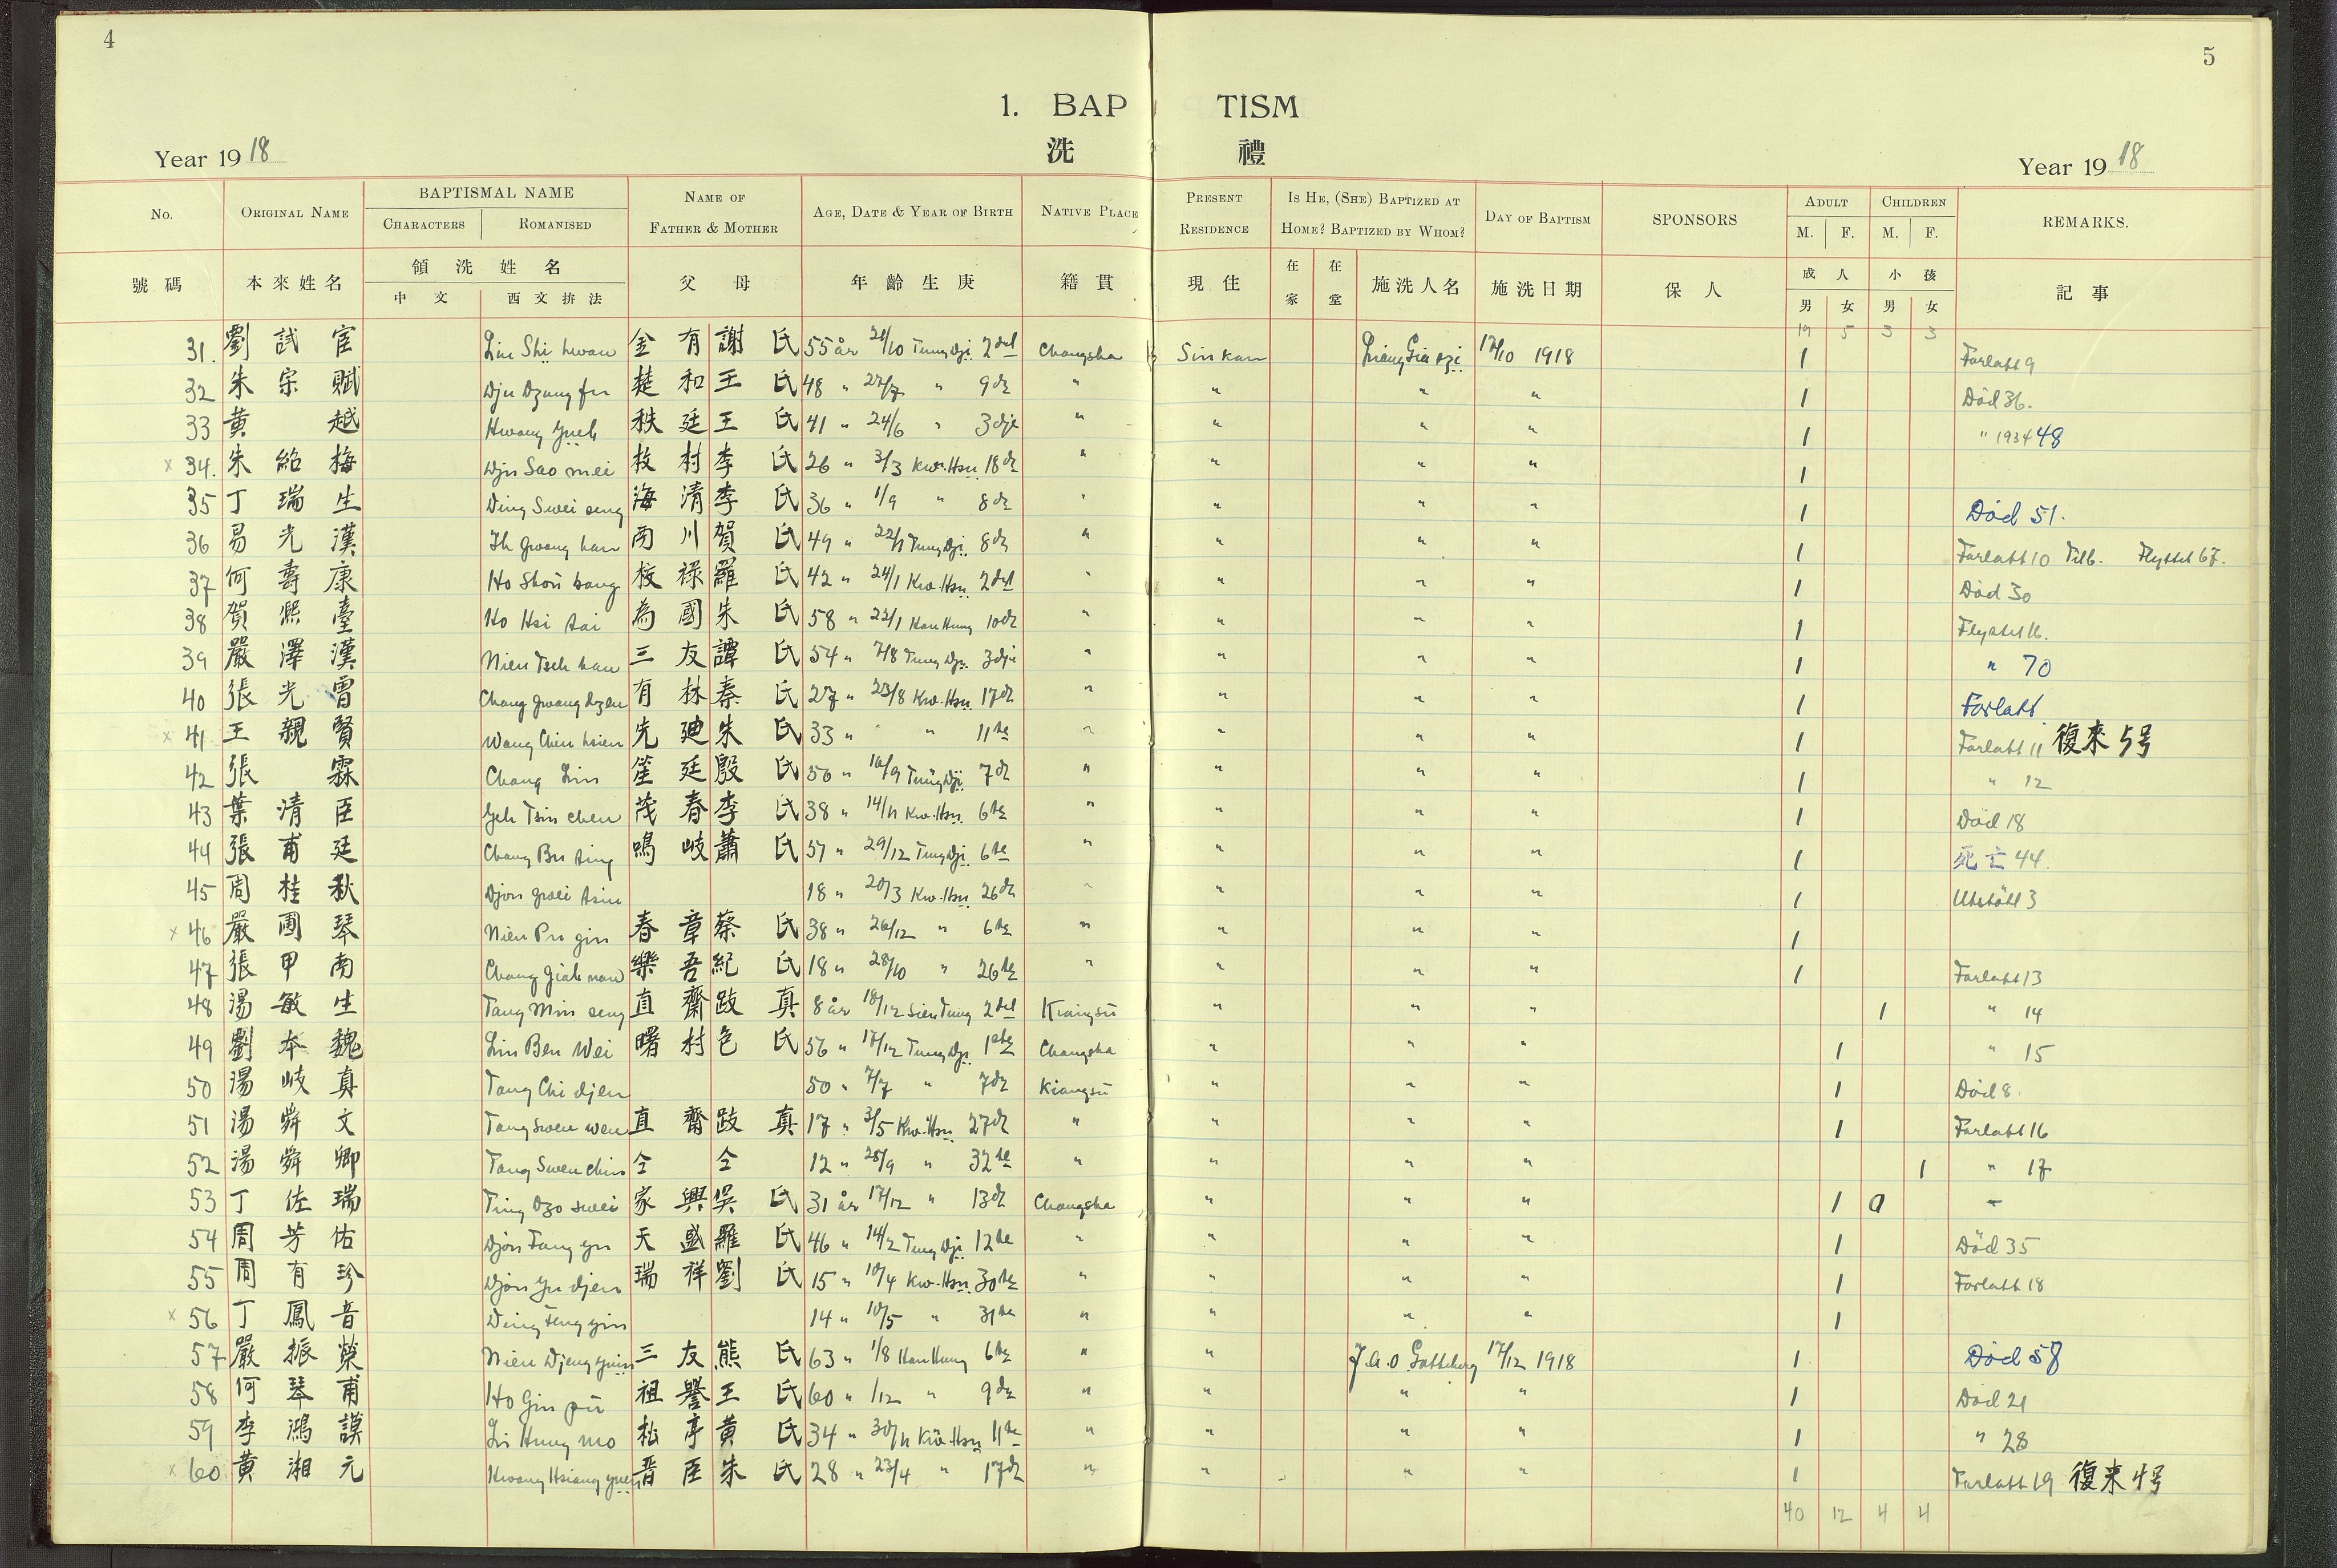 4
5
1. BAP TISM
洗 禮
Year 19 18
Year 19 18
No. ORIGINAL NAME BAPTISMAL NAME NAME OF FATHER & MOTHER AGE, DATE & YEAR OF BIRTH NATIVE PLACE PRESENT RESIDENCE IS HE, (SHE) BAPTIZED AT HOME? BAPTIZED BY WHOM? DAY OF BAPTISM SPONSORS ADULT CHILDREN REMARKS.
CHARACTERS ROMANISED M. F. M. F.
號碼 本來姓名 領洗姓名 父母 年齡生庚 籍貫 現住 在家 在堂 施洗人名 施洗日期 保人 成人 小孩 記事
中文 西文拚法 男 女 男 女
19 5 3 3
31. 劉試宦 Liu Shi hwan 金有 謝氏 55 år 21/10 Tung Dji 2del Changsha Sinkan 17/10 1918 1 Förlatt 9
32 朱宗賦 Dju Dzung fu 楚和 王氏 48 " 27/7 " 9de " " " " 1 Död 36.
33 黃越 Hwang Yueh 秩廷 王氏 41 " 24/6 " 3dje " " " " 1 " 1934 48
x 34. 朱紹梅 Dju Sao mei 枚村 李氏 26 " 3/3 Kw. Hsu 18de " " " " 1
35 丁瑞生 Ding Swei seng 海清 李氏 36 " 1/9 " 8de " " " " 1 Död 51.
36 易光漢 Ih Gwang han 南川 賀氏 49 " 22/1 Tung Dji 8de " " " " 1 Förlatt 10 Tillb. Flyttat 67.
37 何壽康 Ho Shou kang 祿 羅氏 42 " 24/1 Kw. Hsu 2del " " " " 1 Död 30
38 賀熙臺 Ho Hsi tai 為國 朱氏 58 " 23/1 Han Hung 10de " " " " 1 Flyttat 16.
39 嚴澤漢 Nien Tseh han 三友 譚氏 54 " 7/8 Tung Dji 3dje " " " " 1 " 70
40 張光曾 Chang Gwang dzen 有林 秦氏 27 " 23/8 Kw. Hsu 17de " " " " 1 Förlatt
x 41 王親賢 Wang Chin hsien 先廸 朱氏 33 " " " 11te " " " " 1 Förlatt 11 復來5号
42 張霖 Chang Lin 廷 殷氏 50 " 16/9 Tung Dji 7de " " " " 1 " 12
43 葉清臣 Yeh Tsin chen 茂春 李氏 38 " 14/11 Kw. Hsu 6te " " " " 1 Död 18
44 張甫廷 Chang Bu ting 鳴岐 蕭氏 57 " 29/12 Tung Dji 6te " " " " 1 死亡 44.
45 周桂秋 Djou Gwei tsiu 18 " 20/3 Kw. Hsu 26de " " " " 1 Utstött 3
x 46 嚴圃琴 Nien Pu gin 春章 蔡氏 38 " 26/12 " 6te " " " " 1
47 張甲南 Chang Giah nan 樂吾 紀氏 18 " 28/10 " 26te " " " " 1 Förlatt 13
48 湯敏生 Tang Min seng 直齋 岐真 8 år 18/12 Sien Tung 2del Kiangsü " " " 1 " 14
49 劉本魏 Liu Ben Wei 曙村 色氏 56 " 17/12 Tung Dji 1ste Changsha " " " 1 " 15
50 湯岐真 Tang Chi djen 50 " 7/7 " 7de Kiangsü " " " 1 Död 8.
51 湯舜文 Tang Swen wen 直齋 岐真 17 " 3/5 Kw. Hsu 27de " " " " 1 Förlatt 16
52 湯舜卿 Tang Swen chin 仝 仝 12 " 28/9 " 32te " " " " 1 " 17
53 丁佐瑞 Ting Dzo swei 家興 吳氏 31 år 17/12 " 13de Changsha " " " 1
54 周芳佑 Djou Fang yu 天盛 羅氏 46 " 14/2 Tung Dji 12te " " " " 1 Död 35
55 周有珍 Djou Yu djen 瑞祥 劉氏 15 " 10/4 Kw. Hsu 30te " " " " 1 Förlatt 18
x 56 丁鳳音 Ding Feng yin 14 " 10/5 " 31te " " " " 1
57 嚴振榮 Nien Djeng yuin 三友 熊氏 63 " 1/8 Han Hung 6te " " J.A.O. Gottberg 17/12 1918 1 Död 58
58 何琴甫 Ho Gin pü 祖譽 王氏 60 " 1/12 " 9de " " " " 1 Död 21
59 李鴻謨 Li Hung mo 松亭 黃氏 34 " 30/11 Kw. Hsu 11te " " " " 1 " 28
x 60 黃湘元 Hwang Hsiang yuen 晋臣 朱氏 28 " 23/4 " 17de " " " " 1 Förlatt 19 復来4号
40 12 4 4